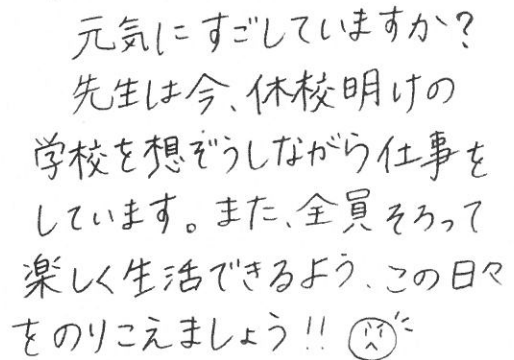 元気にすごしていますか？
先生は今、休校明けの
学校を想ぞうしながら仕事を
しています。また、全員そろって
楽しく生活できるよう、この日々
をのりこえましょう!!